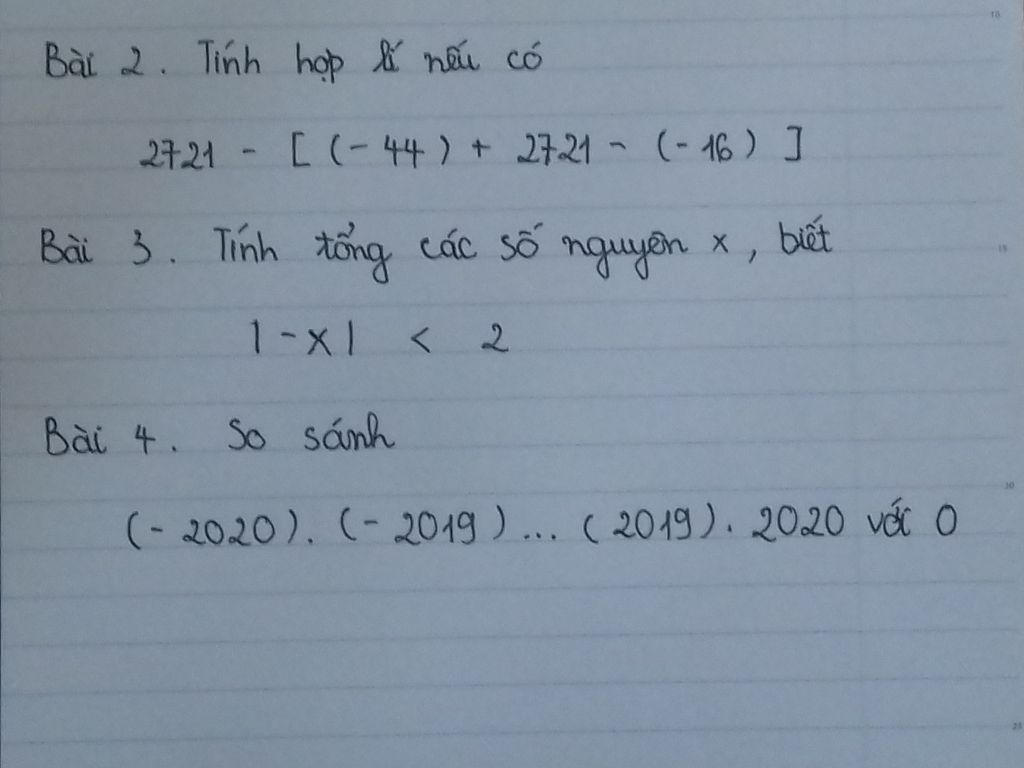 Bài 2. Tính hợp lí nếu có
2721 - [ (- 44) + 2721 - (-16) ]
Bài 3. Tính tổng các số nguyên x, biết
|-x| < 2
Bài 4. So sánh
(- 2020). (- 2019) ... (2019). 2020 với 0